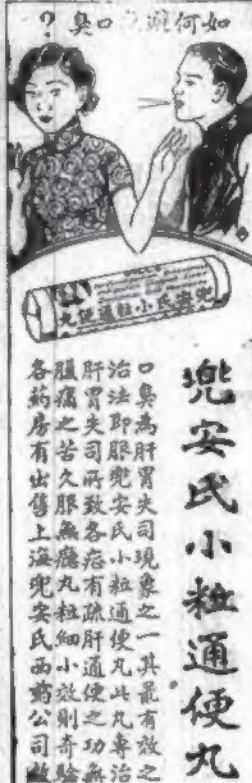 如何避免口臭？
兜安氏小粒通便丸
兜安氏小粒通便丸
口臭為肝胃失司現象之一其最有效之
治法即服兜安氏小粒通便丸此丸專治
肝胃失司所致各症有疏肝通便之功無
腹痛之苦久服無癮丸粒細小效則奇驗
各葯房有出售上海兜安氏西葯公司啟